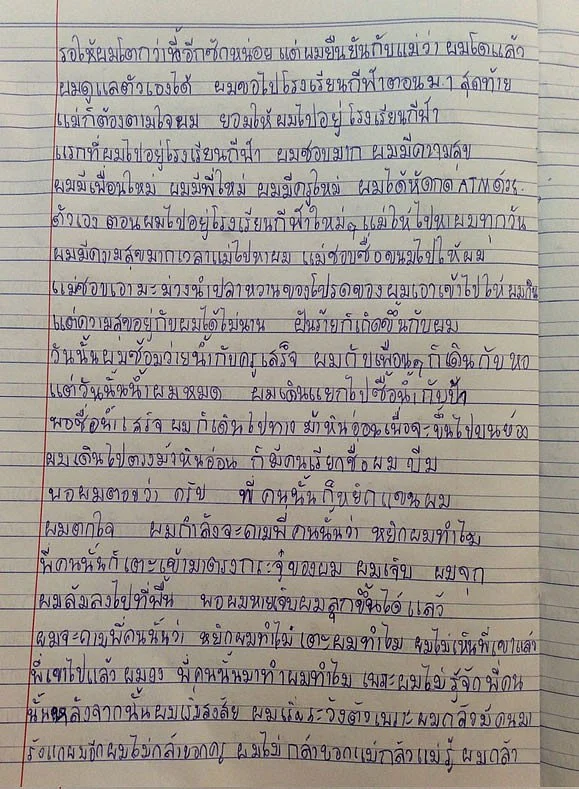 รอให้ผมโตกว่านี้อีกซักหน่อย แต่ผมยืนยันกับแม่ว่า ผมโตแล้ว
ผมดูแลตัวเองได้ ผมขอไปโรงเรียนกีฬาตอนม.1 สุดท้าย
แม่ก็ต้องตามใจผม ยอมให้ผมไปอยู่โรงเรียนกีฬา
แรกที่ผมไปอยู่โรงเรียนกีฬา ผมชอบมาก ผมมีความสุข
ผมมีเพื่อนใหม่ ผมมีพี่ใหม่ ผมมีครูใหม่ ผมได้หัดกด ATM ด้วย
ตัวเอง ตอนผมไปอยู่โรงเรียนกีฬาใหม่ๆ แม่ให้ไปหาผมทุกวัน
ผมมีความสุขมากเวลาแม่ไปหาผม แม่ชอบซื้อขนมไปให้ผม
แม่ชอบเอามะม่วงน้ำปลาหวานของโปรดของผมเอาเข้าไปให้ผมกิน
แต่ความสุขอยู่กับผมได้ไม่นาน ฝันร้ายก็เกิดขึ้นกับผม
วันนั้นผมซ้อมว่ายน้ำกับครูเสร็จ ผมกับเพื่อนๆก็เดินกับหอ
แต่วันนั้นน้ำผมหมด ผมเดินแยกไปซื้อน้ำกับป้า
พอซื้อน้ำเสร็จ ผมก็เดินไปทางม้าหินอ่อนเพื่อจะขึ้นไปบนห้อง
ผมเดินไปตรงม้าหินอ่อน ก็มีคนเรียกชื่อผม บีม
พอผมตอบว่า ครับ พี่คนนั้นก็หยิกแขนผม
ผมตกใจ ผมกำลังจะถามพี่คนนั้นว่า หยิกผมทำไม
พี่คนนั้นก็เตะเข้ามาตรงกระจู๋ของผม ผมเจ็บ ผมจุก
ผมล้มลงไปที่พื้น พอผมหายเจ็บผมลุกขึ้นได้แล้ว
ผมจะถามพี่คนนั้นว่า หยิกผมทำไม เตะผมทำไม ผมไม่เห็นพี่เขาแล้ว
พี่เขาไปแล้ว ผมงง พี่คนนั้นมาทำผมทำไม เพราะผมไม่รู้จักพี่คน
นั้น หลังจากนั้นผมเริ่มสงสัย ผมเริ่มระวังตัวเพราะผมกลัวมีคนมา
รังแกผมอีก ผมไม่กล้าบอกครู ผมไม่กล้าบอกแม่ กลัวแม่รู้ ผมกลัว